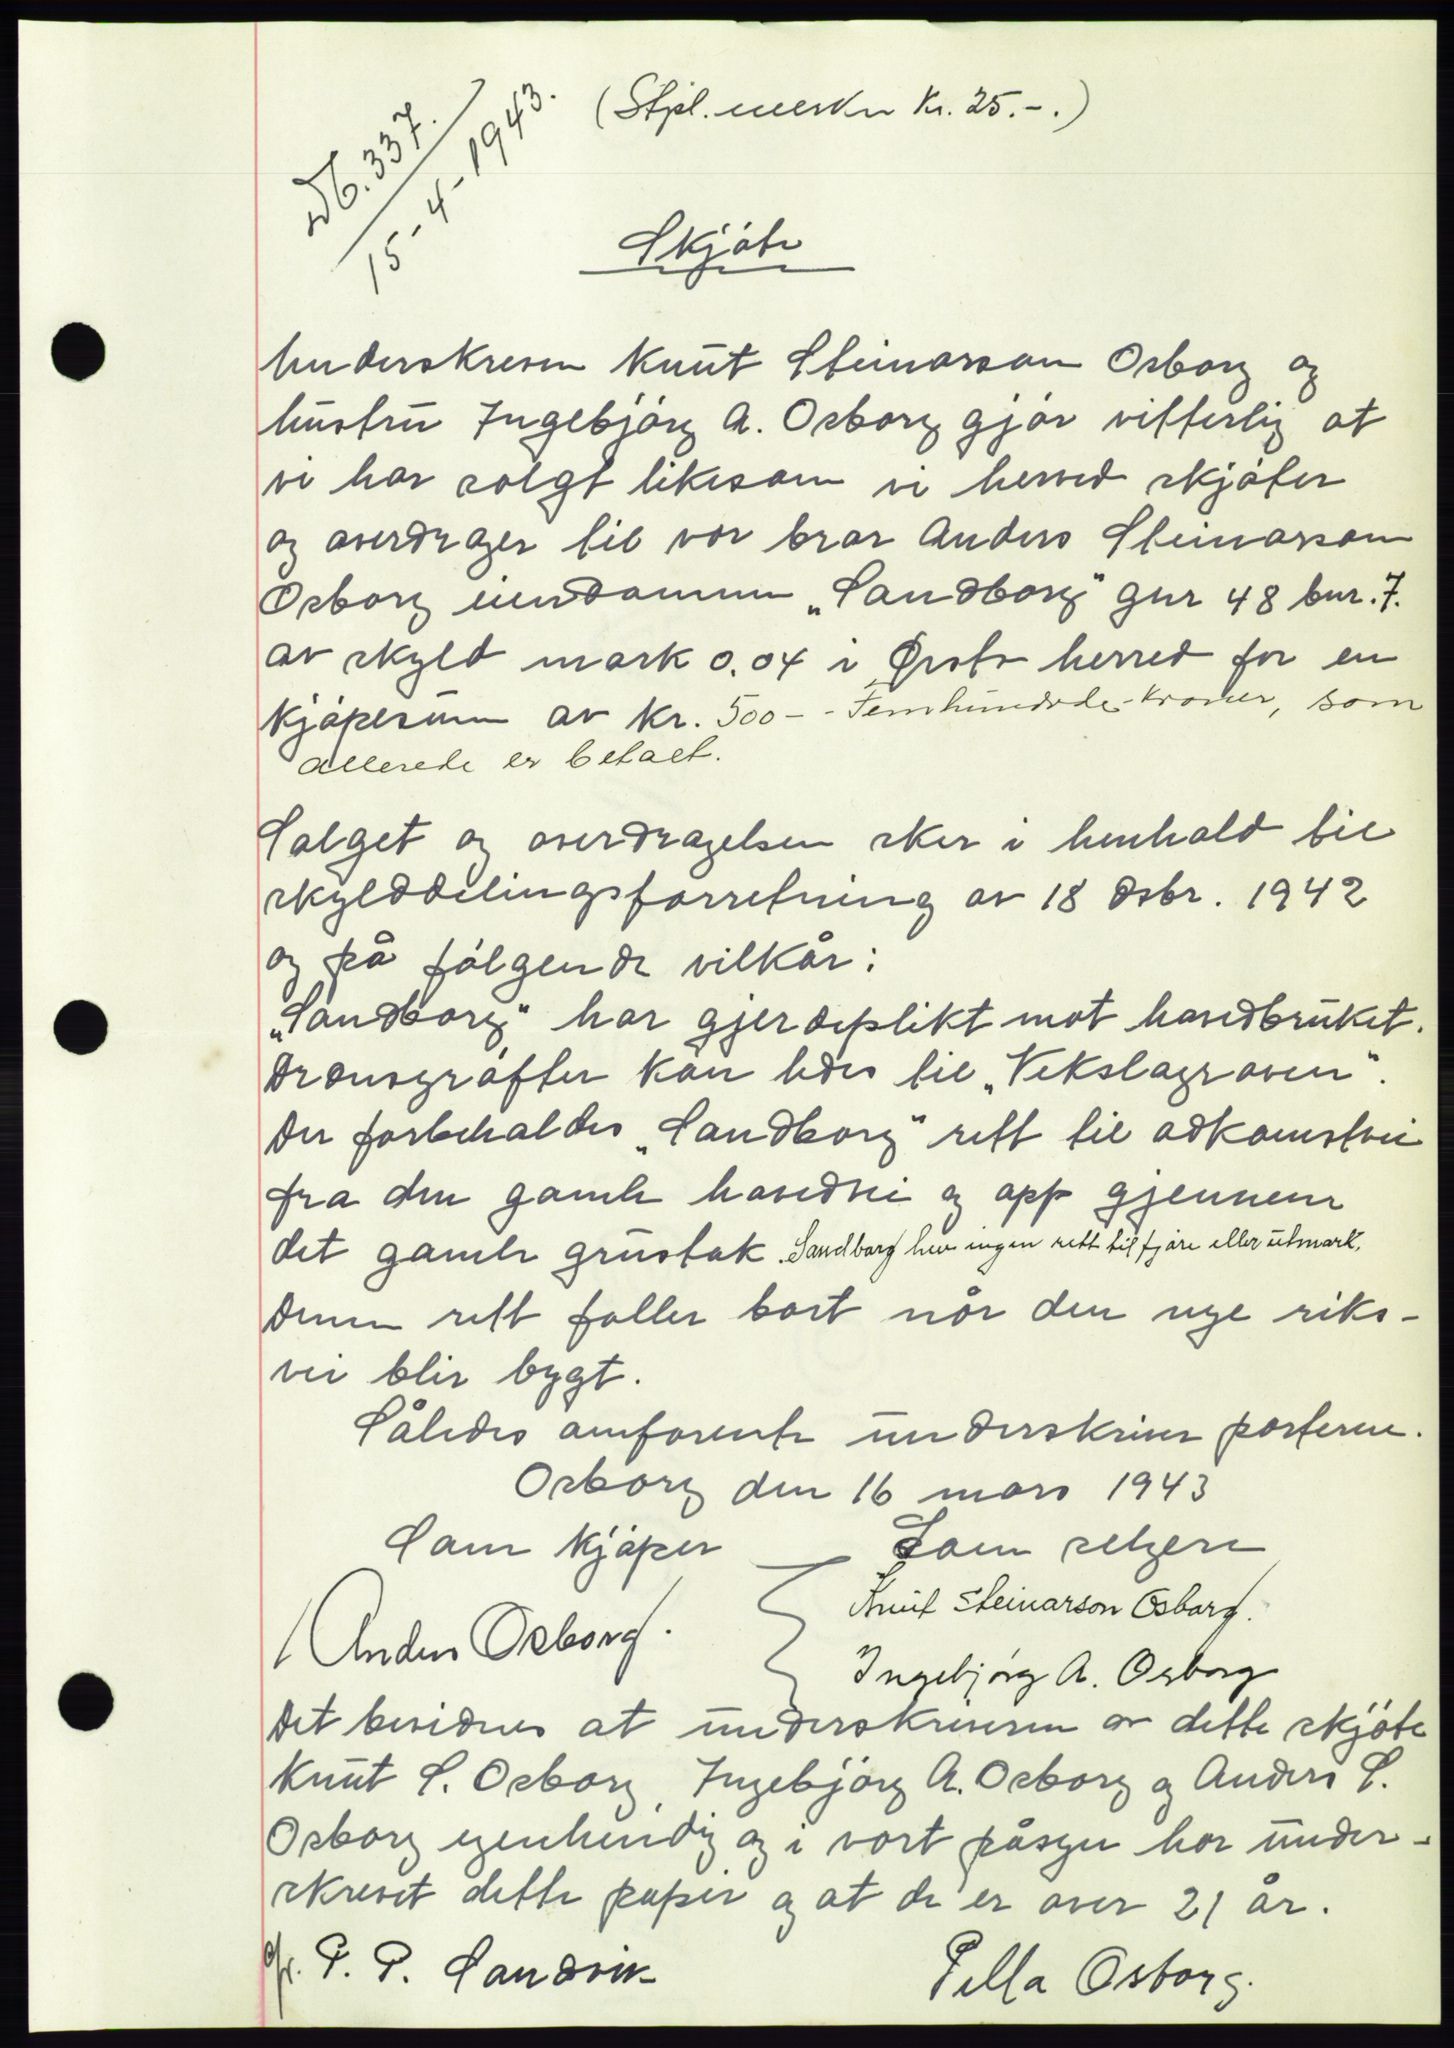 Nb. 337.
15-4-1943.
(Stpl. merke Kr. 25.-.)
Skjøte
Underskreven Knut Steinarson Osborg og
hustru Ingebjørg A. Osborg gjør vitterlig at
vi har solgt likesom vi herved skjøter
og overdrager til vor bror Anders Steinarson
Osborg eiendommen „Sandborg" gnr 48 bnr. 7.
av skyld mark 0.04 i Ørsta herred for en
kjøpesum av kr. 500 - - Femhundrede - kroner, som
allerede er betalt.
Salget og overdragelsen sker i henhold til
skylddelingsforretning av 18 dsbr. 1942
og på følgende vilkår:
„Sandborg" har gjerdeplikt mot hovedbruket.
Drensgrøfter kan ledes til „Vekslagraven".
Der forbeholdes „Sandborg" rett til adkomstvei
fra den gamle hovedvei og opp gjennem
det gamle grustak. Sandborg hev ingen rett til fjøre eller utmark.
Denne rett faller bort når den nye riks-
vei blir bygt.
Således omforente underskriver parterne.
Osborg den 16 mars 1943
Som kjøper Som selgere
Anders Osborg. Knut Steinarson Osborg.
Ingebjørg A. Osborg
Det bevidnes at underskriveren av dette skjøte
Knut S. Osborg, Ingebjørg A. Osborg og Anders S.
Osborg egenhendig og i vort påsyn har under-
skrevet dette papir og at de er over 21 år.
P. P. Sandvik Pella Osborg.